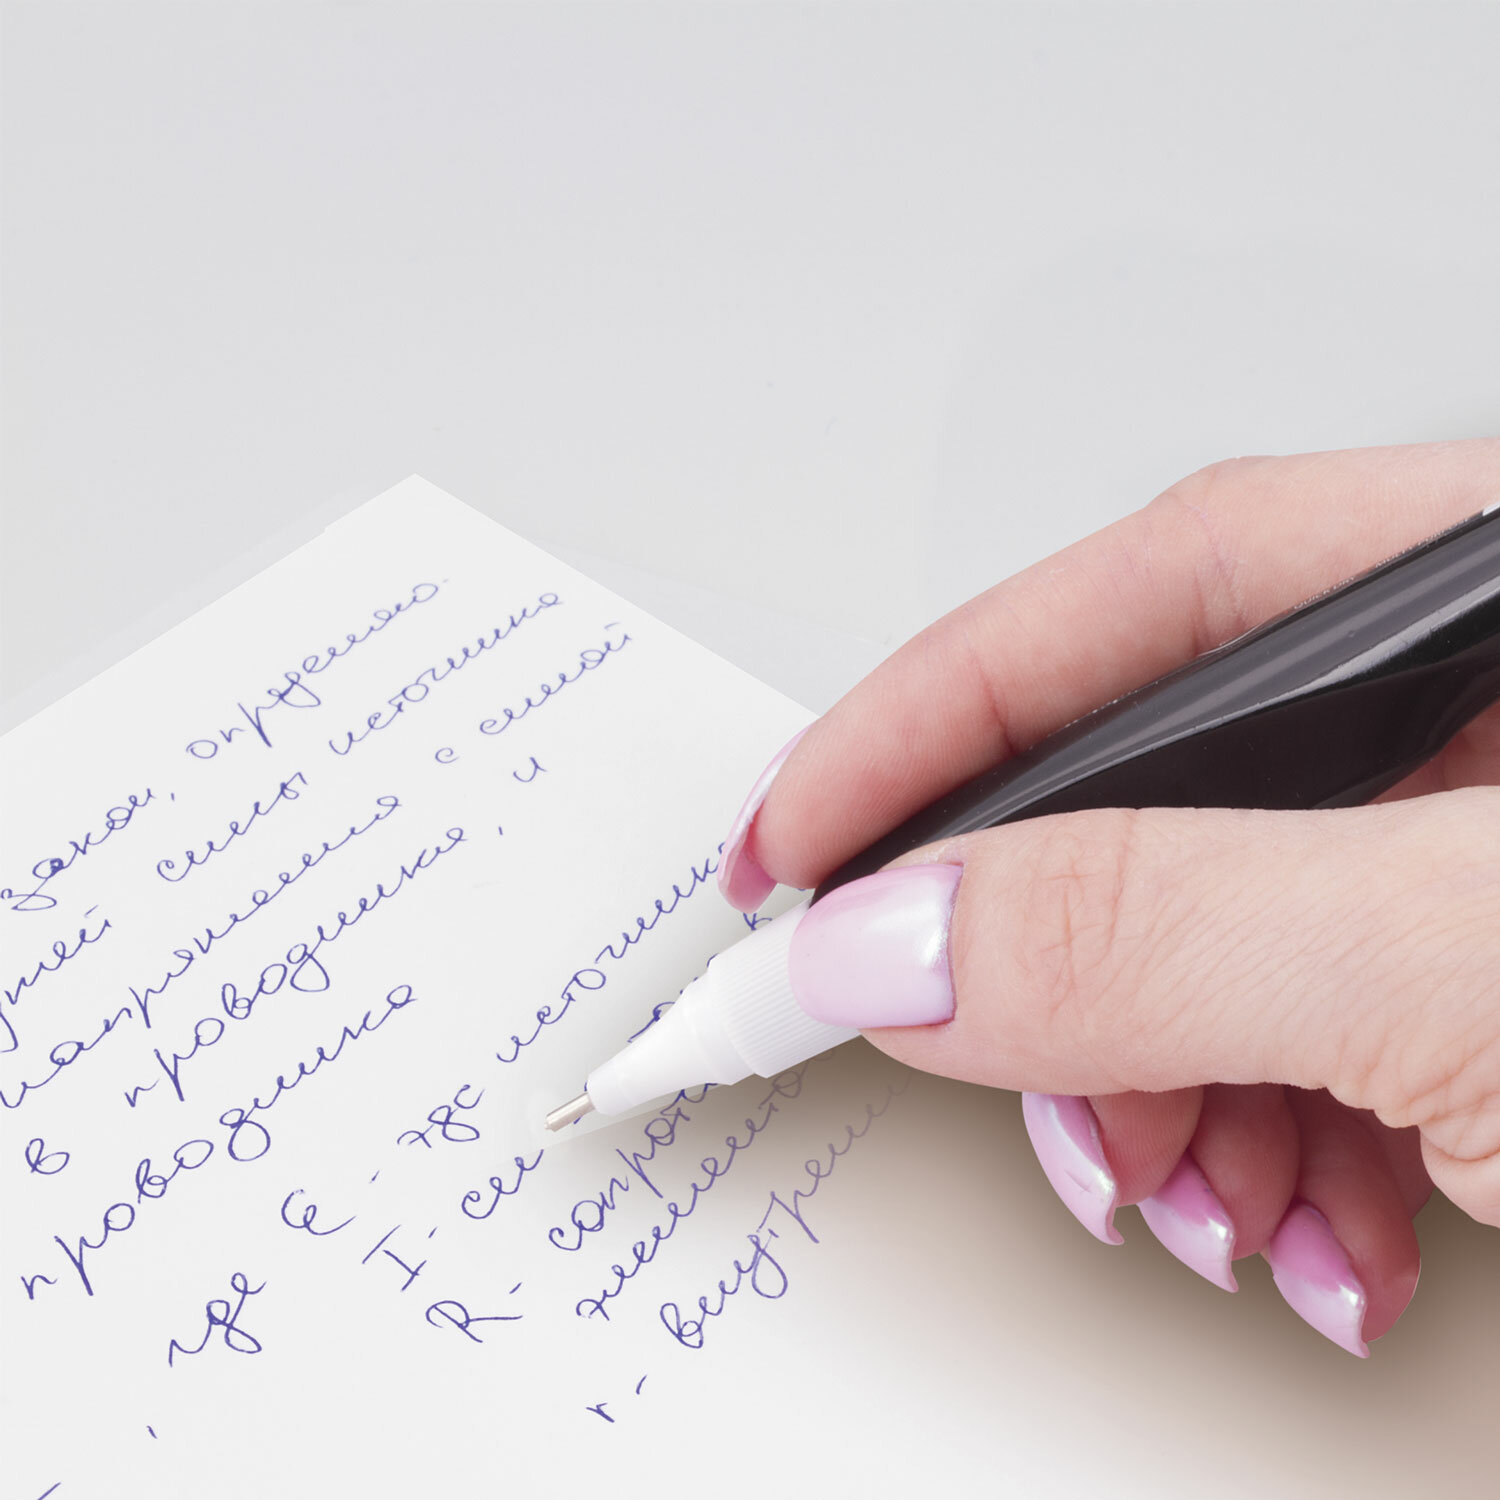 закон, определяю.
силы источника
напряжения с силой
в проводнике, и
проводника
, где Ɛ - эдс источника
I - сил
R - сопрот
r - внутренн